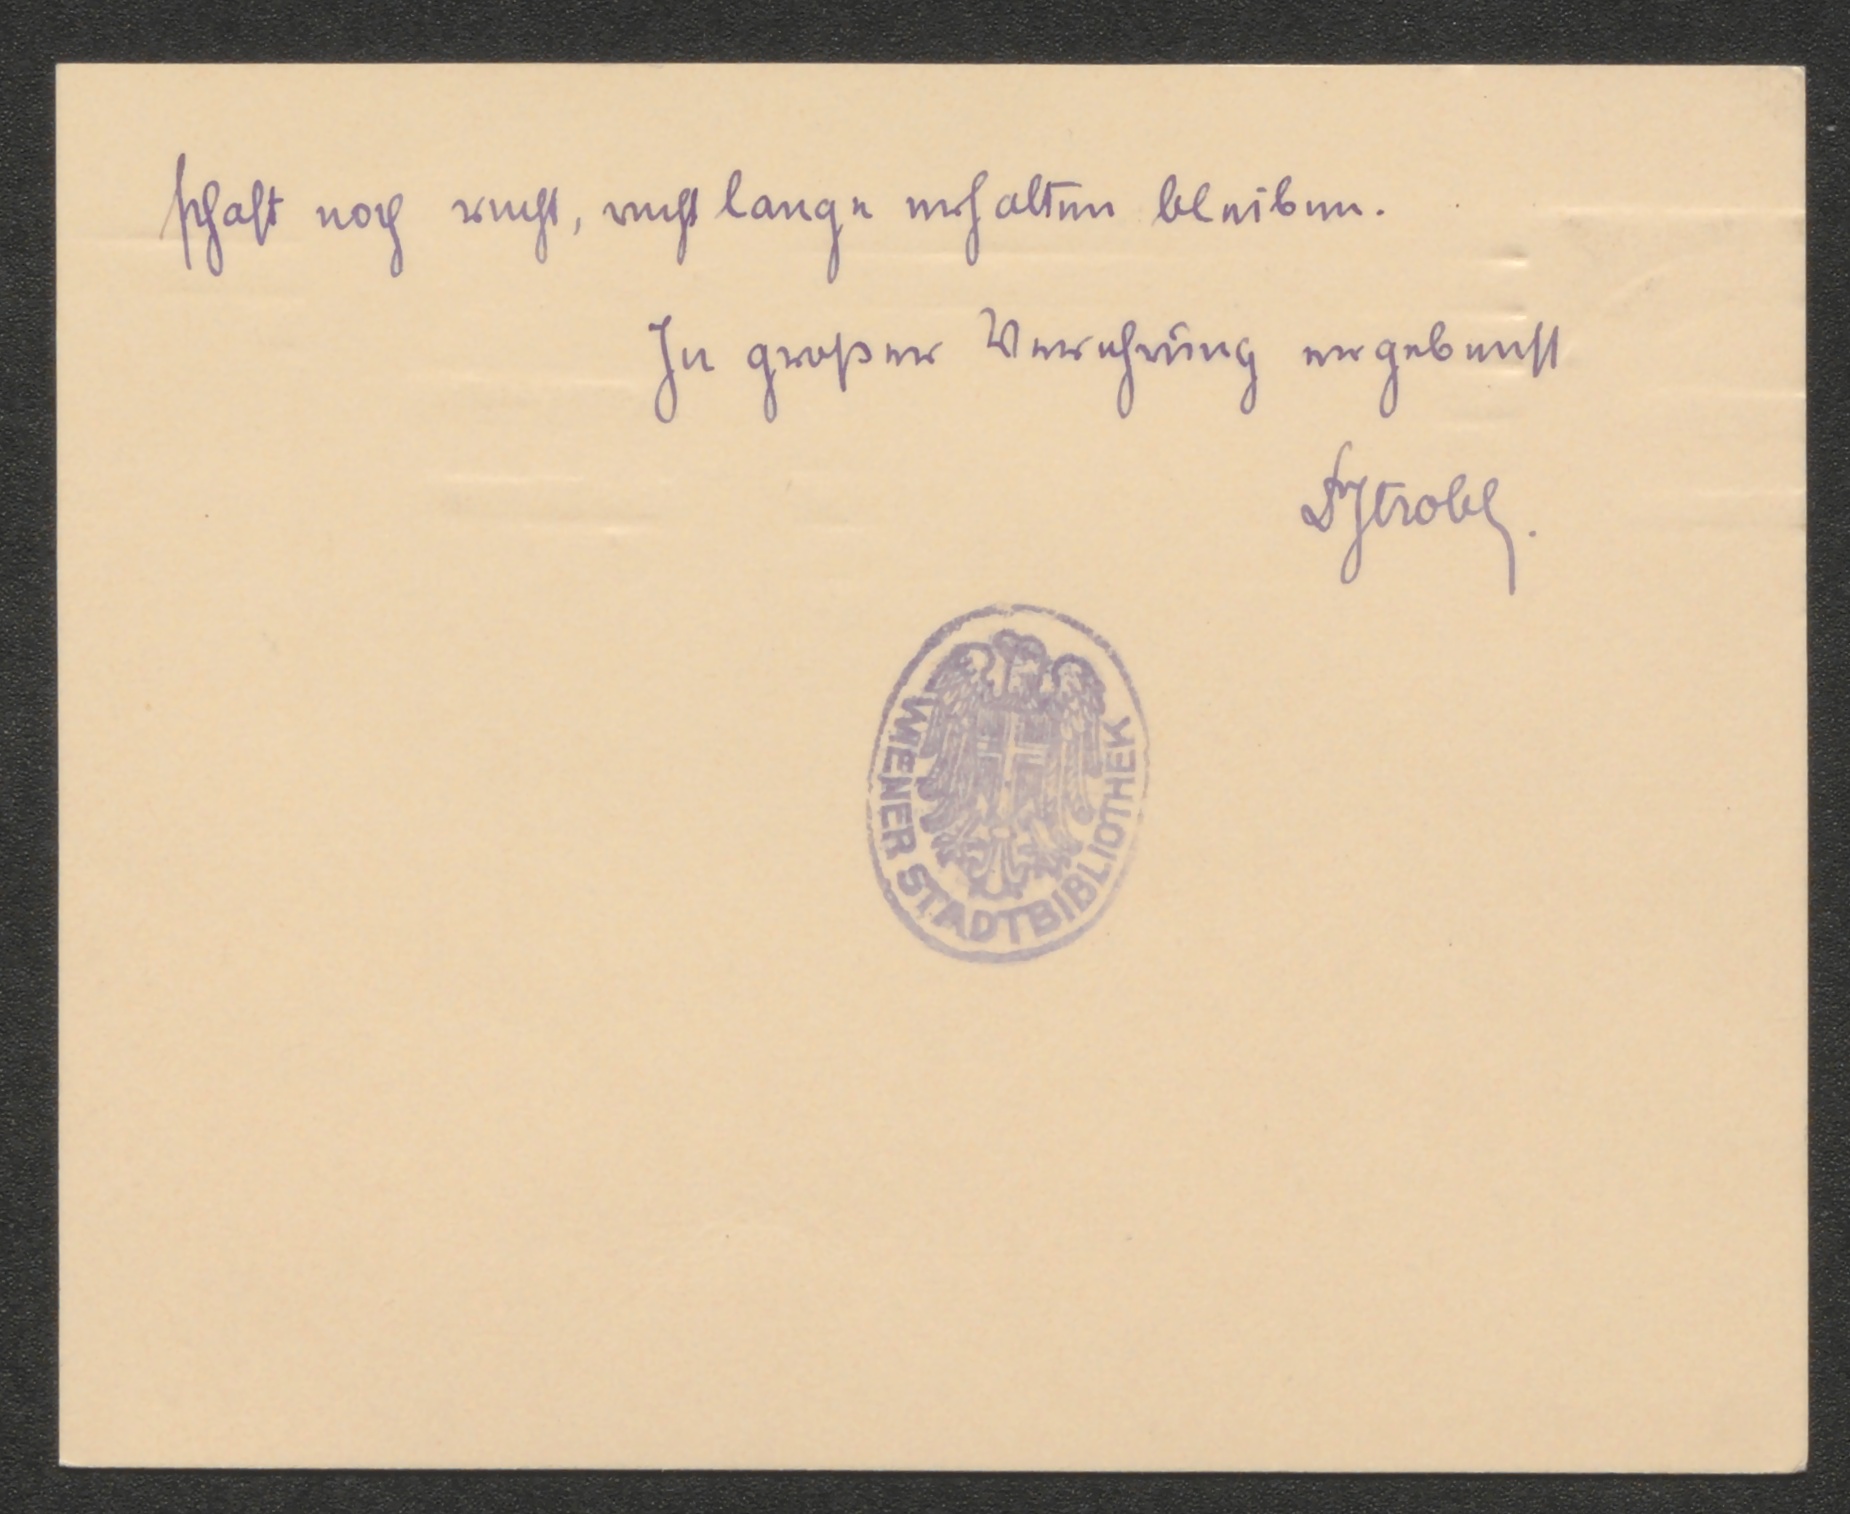 schaft noch recht, recht lange erhalten bleiben.
In großer Verehrung ergebenst
DrStrobl.
WIENER STADTBIBLIOTHEK